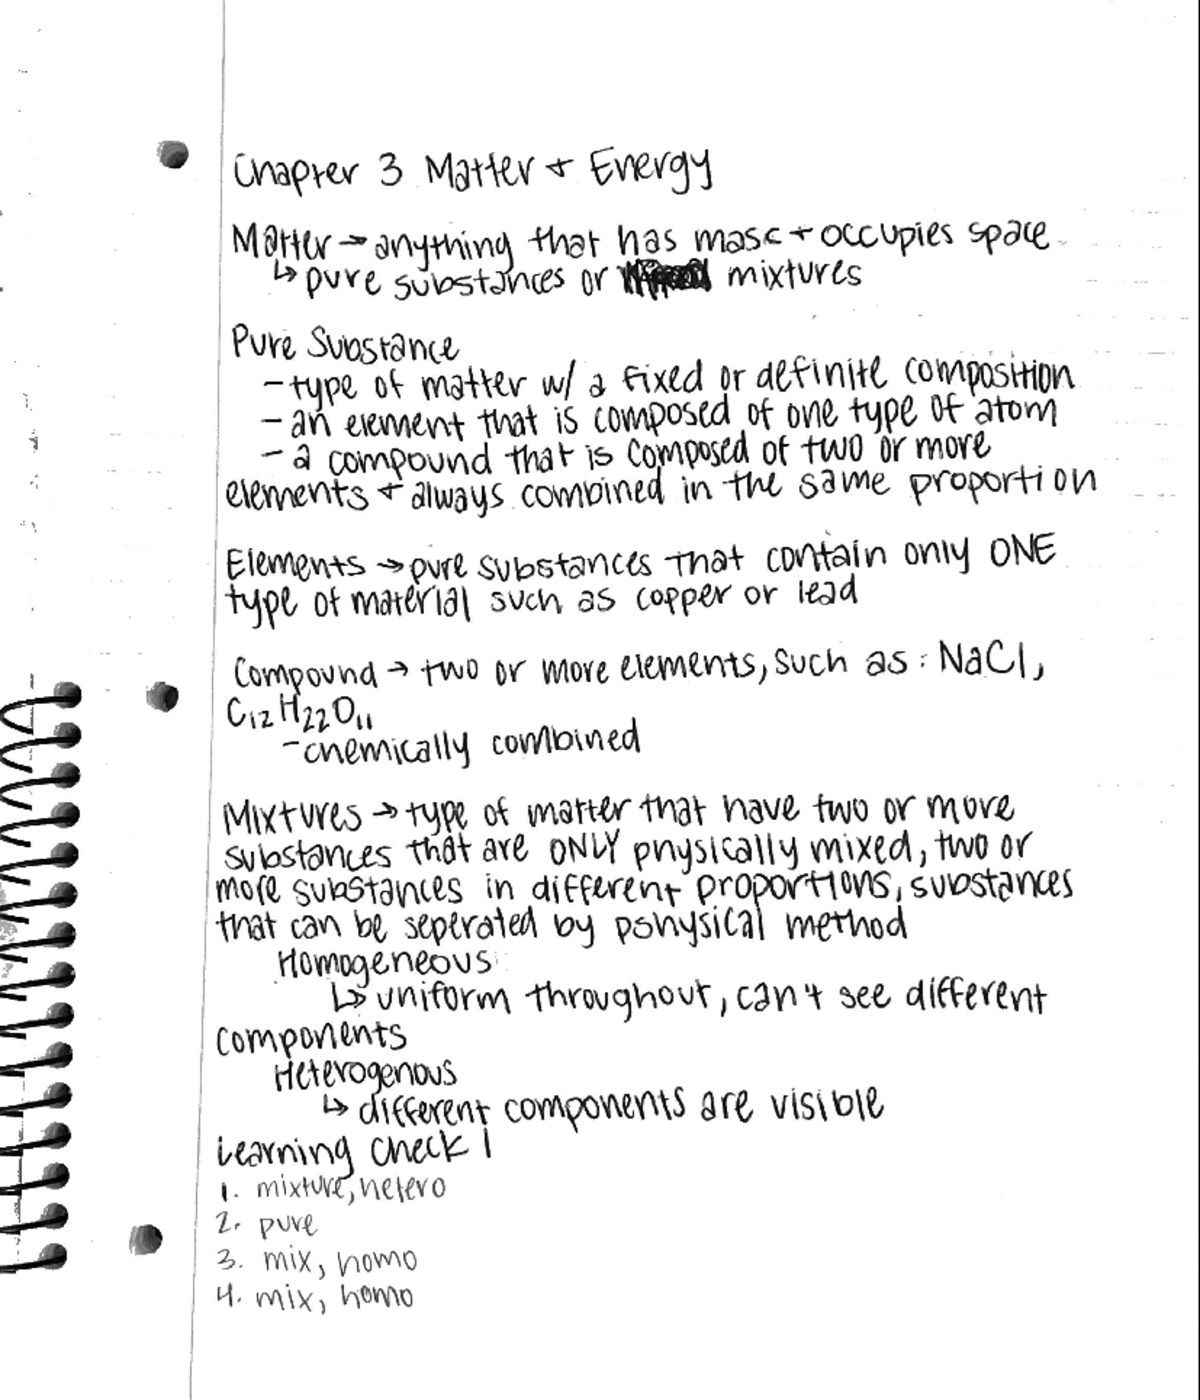 Chapter 3 Matter + Energy
Matter → anything that has mass + occupies space
↳ pure substances or mixtures
Pure Substance
- type of matter w/ a fixed or definite composition
- an element that is composed of one type of atom
- a compound that is composed of two or more
elements + always combined in the same proportion
Elements → pure substances that contain only ONE
type of material such as copper or lead
Compound → two or more elements, such as: NaCl,
C₁₂H₂₂O₁₁
- chemically combined
Mixtures → type of matter that have two or more
substances that are ONLY physically mixed, two or
more substances in different proportions, substances
that can be seperated by pshysical method
Homogeneous
↳ uniform throughout, can't see different
components
Heterogenous
↳ different components are visible
Learning Check 1
1. mixture, hetero
2. pure
3. mix, homo
4. mix, homo